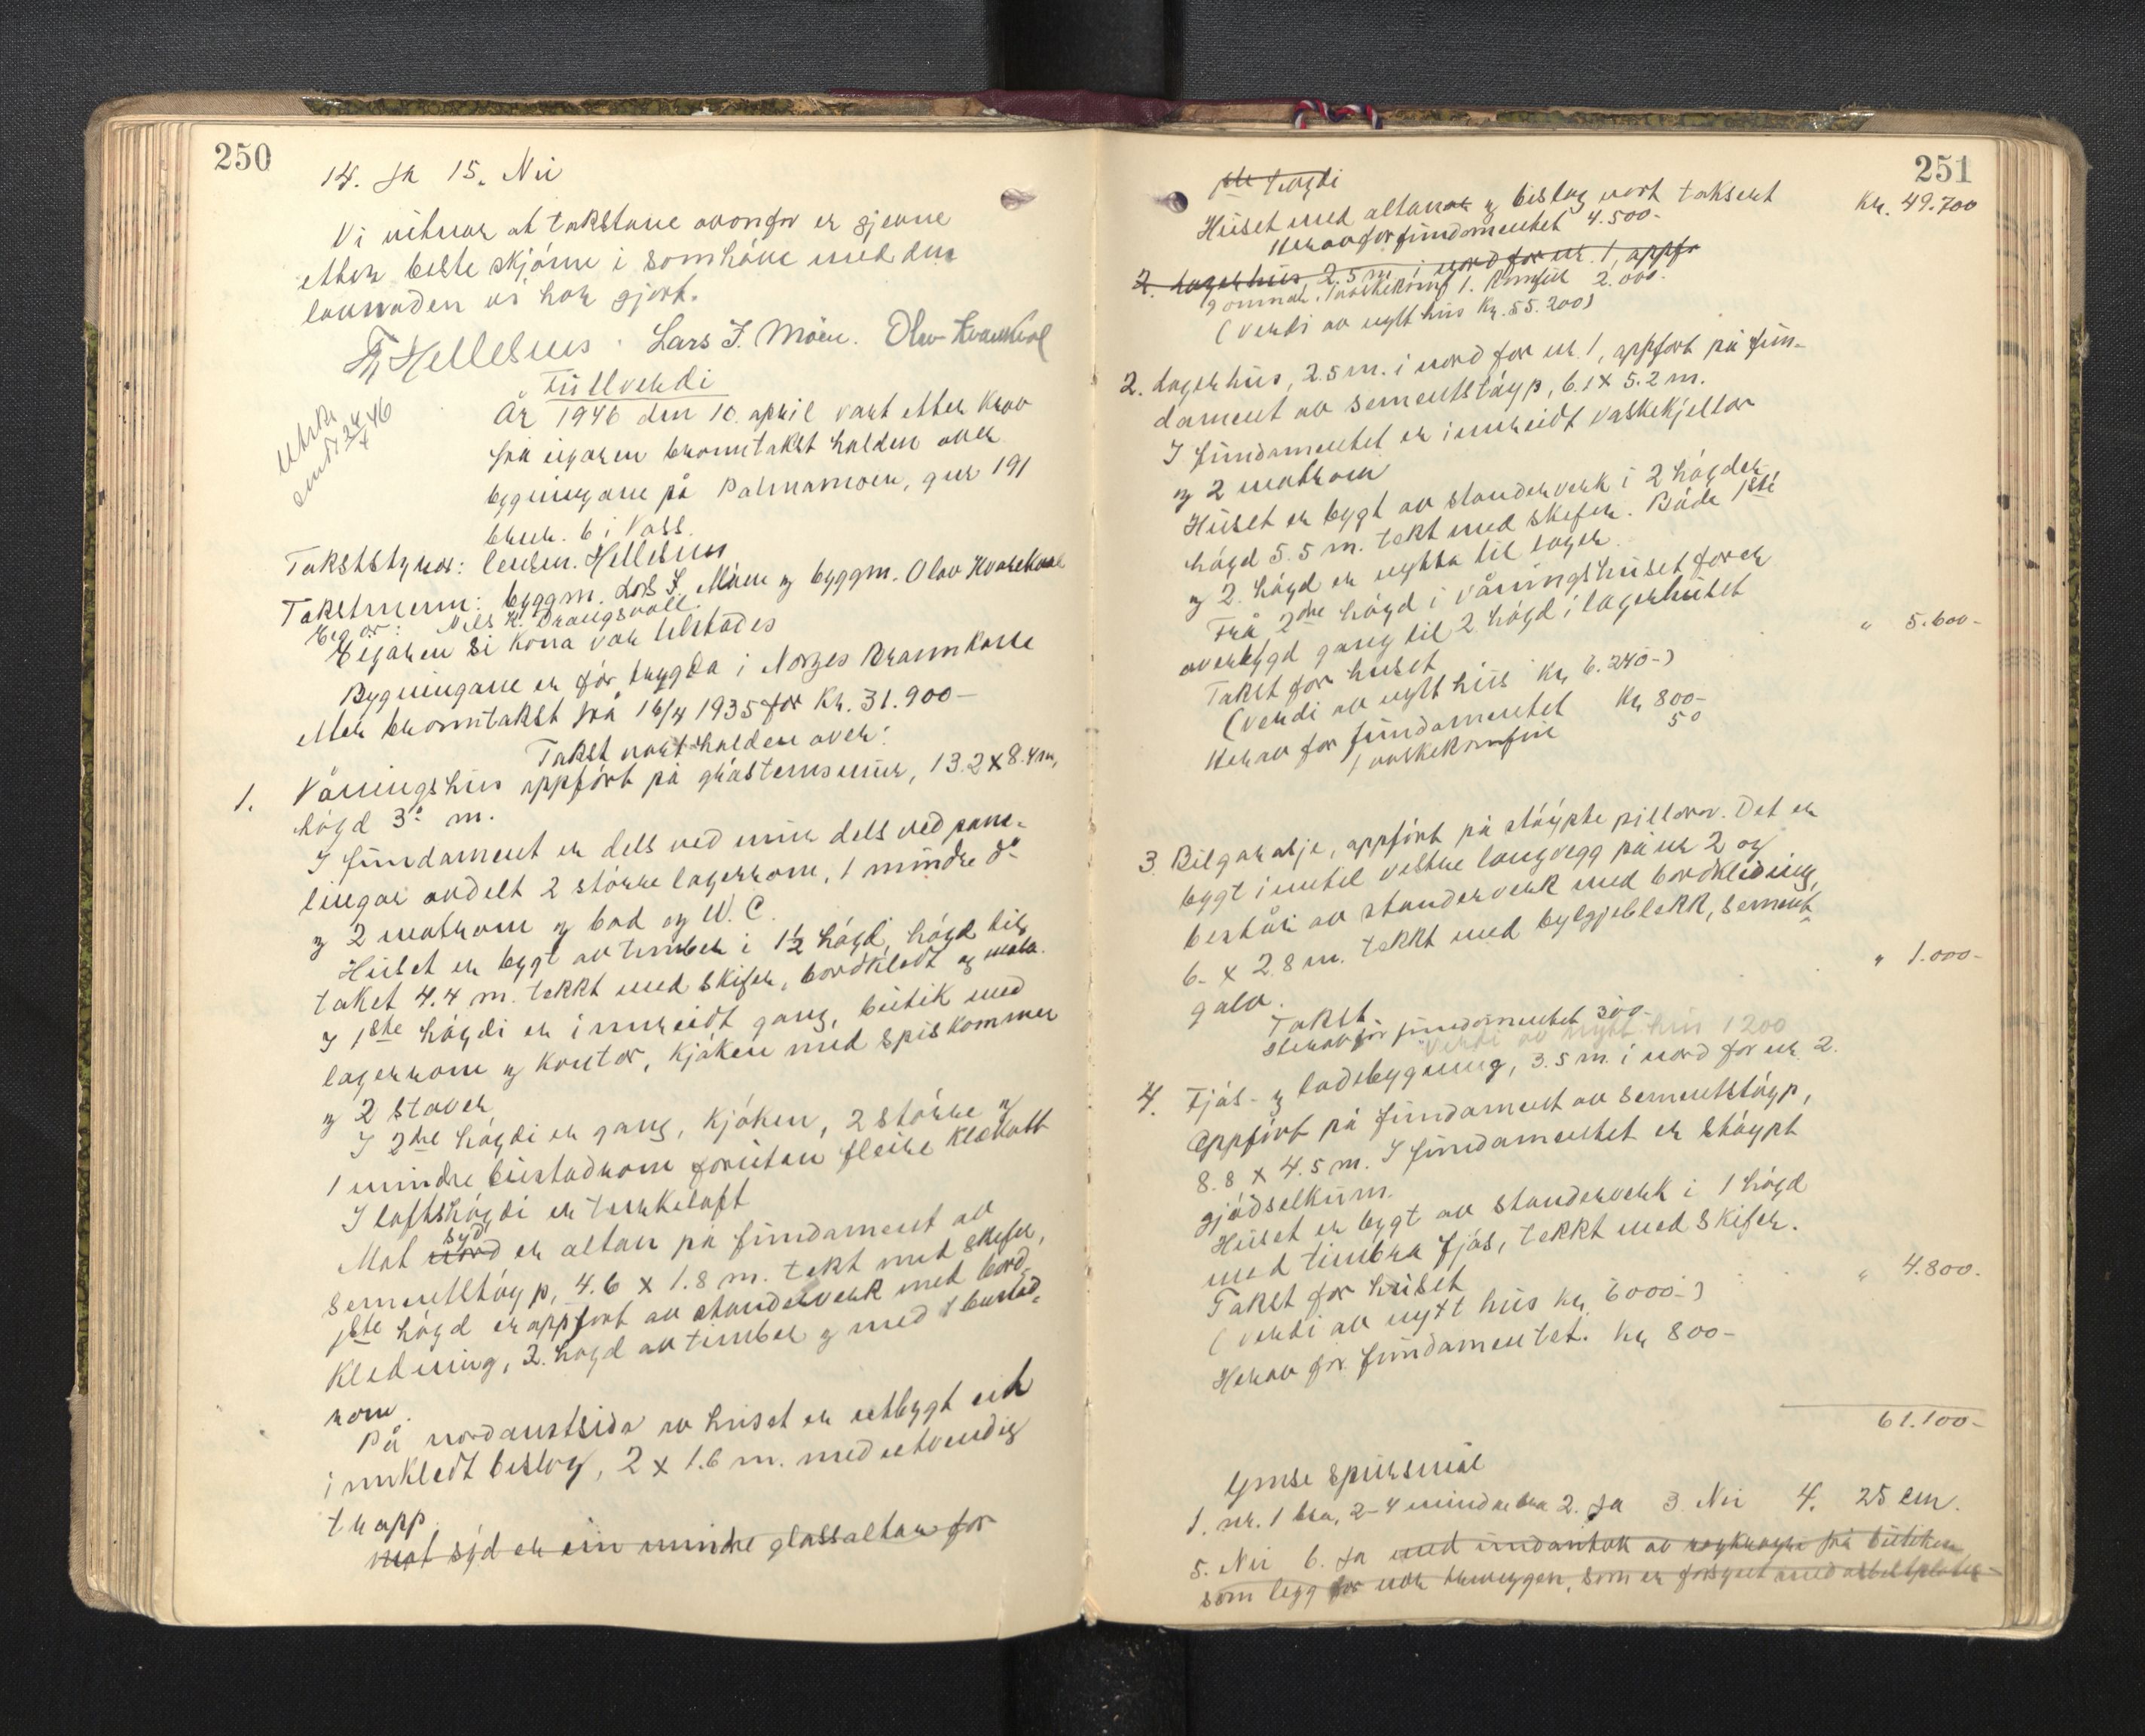 250
14. Ja 15. Nei
Vi vitnar at takstane ovanfor er gjevne
etter beste skjönn i somhöve med den
lovnaden vi har gjort.
Hellesnes. Lars J. Möen. Olav Kvarekval
Fullverdi
Utskr.
sendt 24/4 46
År 1946 den 10. april vart etter krav
frå eigaren branntakst halden over
bygningane på Palmamoen, gnr 191
bruk. 6 i Voss.
Takststyrar: lensm. Hellesnes
Takstmenn: byggm. Lars J. Möen og byggm. Olav Kvarekval
Eigar: Nils K. Drangsvoll.
Eigaren si kona var tilstades
Bygningane er för trygda i Norges Brannkasse
etter branntakst frå 16/4 1935 for kr. 31.900-
Takst vart halden over:
1. Våningshus uppfört på gråsteinsmur, 13.2 x 8.4 m,
högd 3.- m.
I fundament er dels ved mur dels ved pane-
lingar avdelt 2 större lagerrom, 1 mindre do
og 2 matrom og bad og W.C.
Huset er bygt av timber i 1½ högd, högd til
taket 4.4 m. tekkt med skifer, bordkledt og mala.
I 1ste högdi er innreidt gang, butik med
lagerrom og kontor, kjöken med spiskommer
og 2 stover
I 2dre högdi er gang, kjöken, 2 större og
1 mindre bustadrom foruten fleire klekott
I loftshögdi er turkeloft
syd
Mot nord er altan på fundament av
sementstöyp, 4.6 x 1.8 m. tekt med skifer,
1ste högd er appfört av standerverk med bord-
kledning, 2. högd av timber og med 1 bustad-
rom.
På nordaustsida av huset er utbygt eit
innkledt bislag, 2 x 1.6 m. med utvendig
trapp.
Mot syd er ein mindre glassaltan for
251
1ste högdi
Huset med altanar og bislag vart taksert Kr. 49.700
Herav for fundamentet 4.500-
2. Lagerhus, 2.5 m. i nord for nr. 1, appfö
2.000.
(Verdi av nytt hus Kr. 55.200)
2. Lagerhus, 2.5 m. i nord for nr. 1, appfört på fun-
dament av sementstöyp, 6.1 x 5.2 m.
I fundamentet er innreidt vaskekjellar
og 2 matrom
Huset er bygt av standerverk i 2 högder,
högd 5.5 m. tekt med skifer. Både 1ste
og 2. högd er nytta til lager
Frå 2dre högd i våningshuset förer
overbygd gang til 2 högd i lagerhuset
Takst for huset " 5.600-
(verdi av nytt hus kr. 6.240-)
Herav for fundamentet kr 800-
1 vaskekomfur 50
3. Bilgarasje, appfört på stöypte pillarar. Det er
bygt inntil vestre langvegg på nr 2 og
består av standerverk med bordkledning,
6.- x 2.8 m. tekkt med bylgjeblekk, sement-
golv.
Takst. " 1.000-
Herav for fundamentet 300-
Verdi av nytt hus 1200
4. Fjös- og lödebygning, 3.5 m. i nord for nr 2.
Appfört på fundament av sementstöyp,
8.8 x 4.5 m. I fundamentet er stöypt
gjödselkum.
Huset er bygt av standerverk i 1 högd
med timbra fjös, tekkt med skifer.
Takst for huset " 4.800.
(verdi av nytt hus kr. 6000-)
Herav for fundamentet. kr 800-
61.100-
Ymse spursmål
1. nr. 1 bra, 2-4 mindre bra 2. Ja 3. Nei 4. 25 cm.
5. Nei 6. Ja med undantak av röykröyr frå butiken
som legg for nær treveggen, som er forsynt med